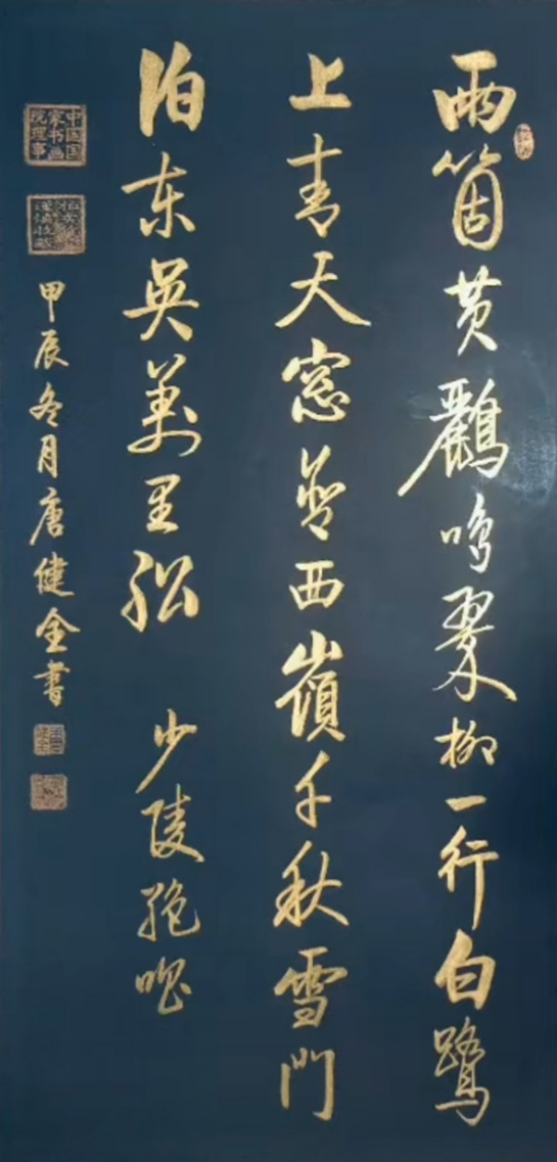 兩箇黄鸝鳴翠柳一行白鷺
上青天窓含西嶺千秋雪門
泊东吳萬里舩 少陵絶唱
甲辰冬月唐健全書
中国国家书画院理事